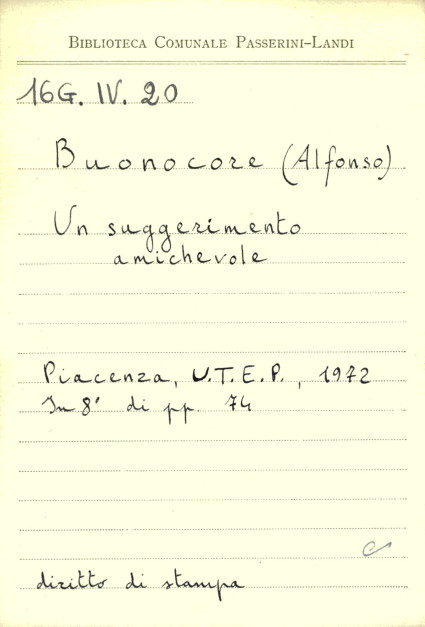 BIBLIOTECA COMUNALE PASSERINI-LANDI
16G. IV. 20
Buonocore (Alfonso)
Un suggerimento
amichevole
Piacenza, U.T.E.P., 1972
In 8° di pp. 74
diritto di stampa